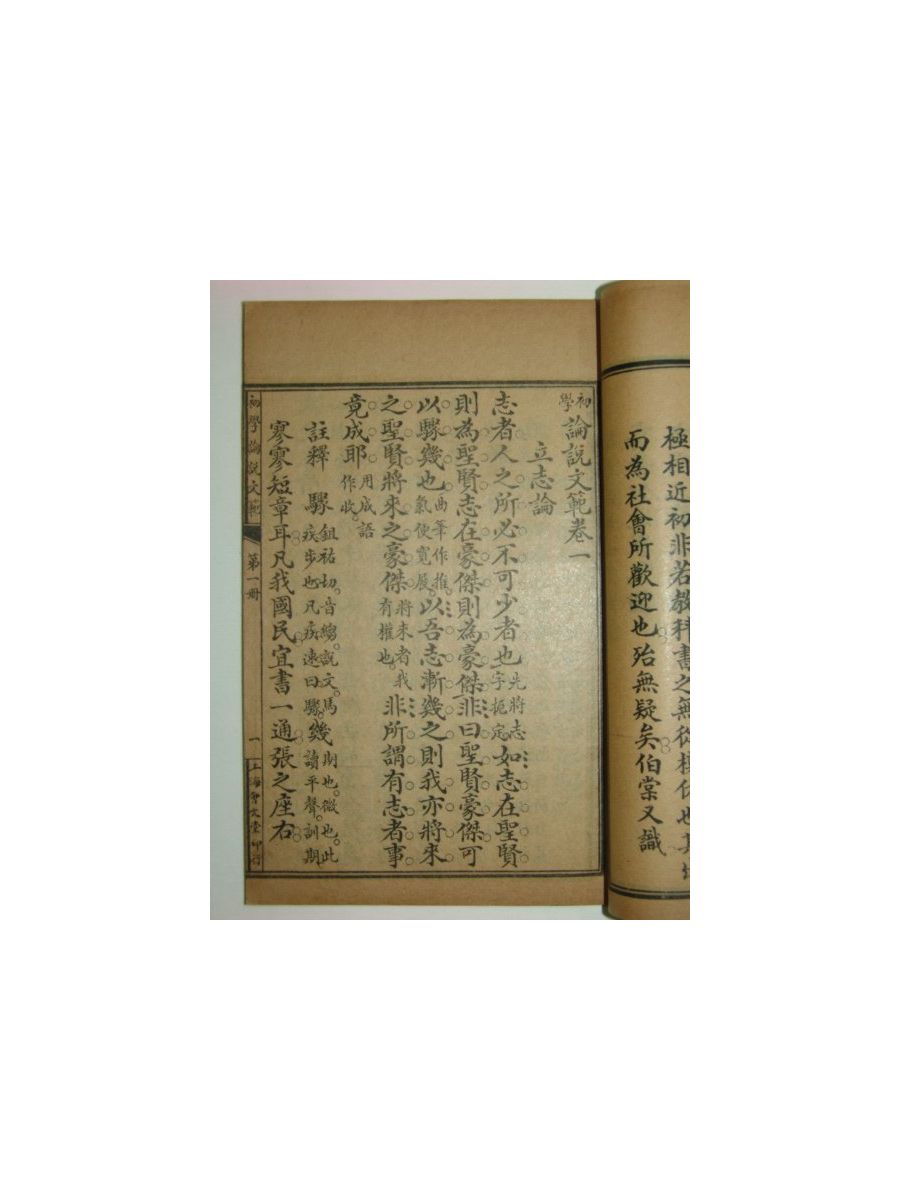 極相近初非若教科書之無從模仿也其
而為社會所歡迎也殆無疑矣伯棠又識
初學論說文範卷一
立志論
志者人之所必不可少者也先將志字扼定如志在聖賢
則為聖賢志在豪傑則為豪傑非曰聖賢豪傑可
以驟幾也此筆作推氣使寬展以吾志漸幾之則我亦將來
之聖賢將來之豪傑將來者我有權也非所謂有志者事
竟成耶用成語作收
註釋 驟鉏祐切音縐說文馬疾步也凡疾速曰驟幾期也微也此讀平聲訓期
寥寥短章耳凡我國民宜書一通張之座右
初學論說文範 第一冊 一 上海會文堂印行